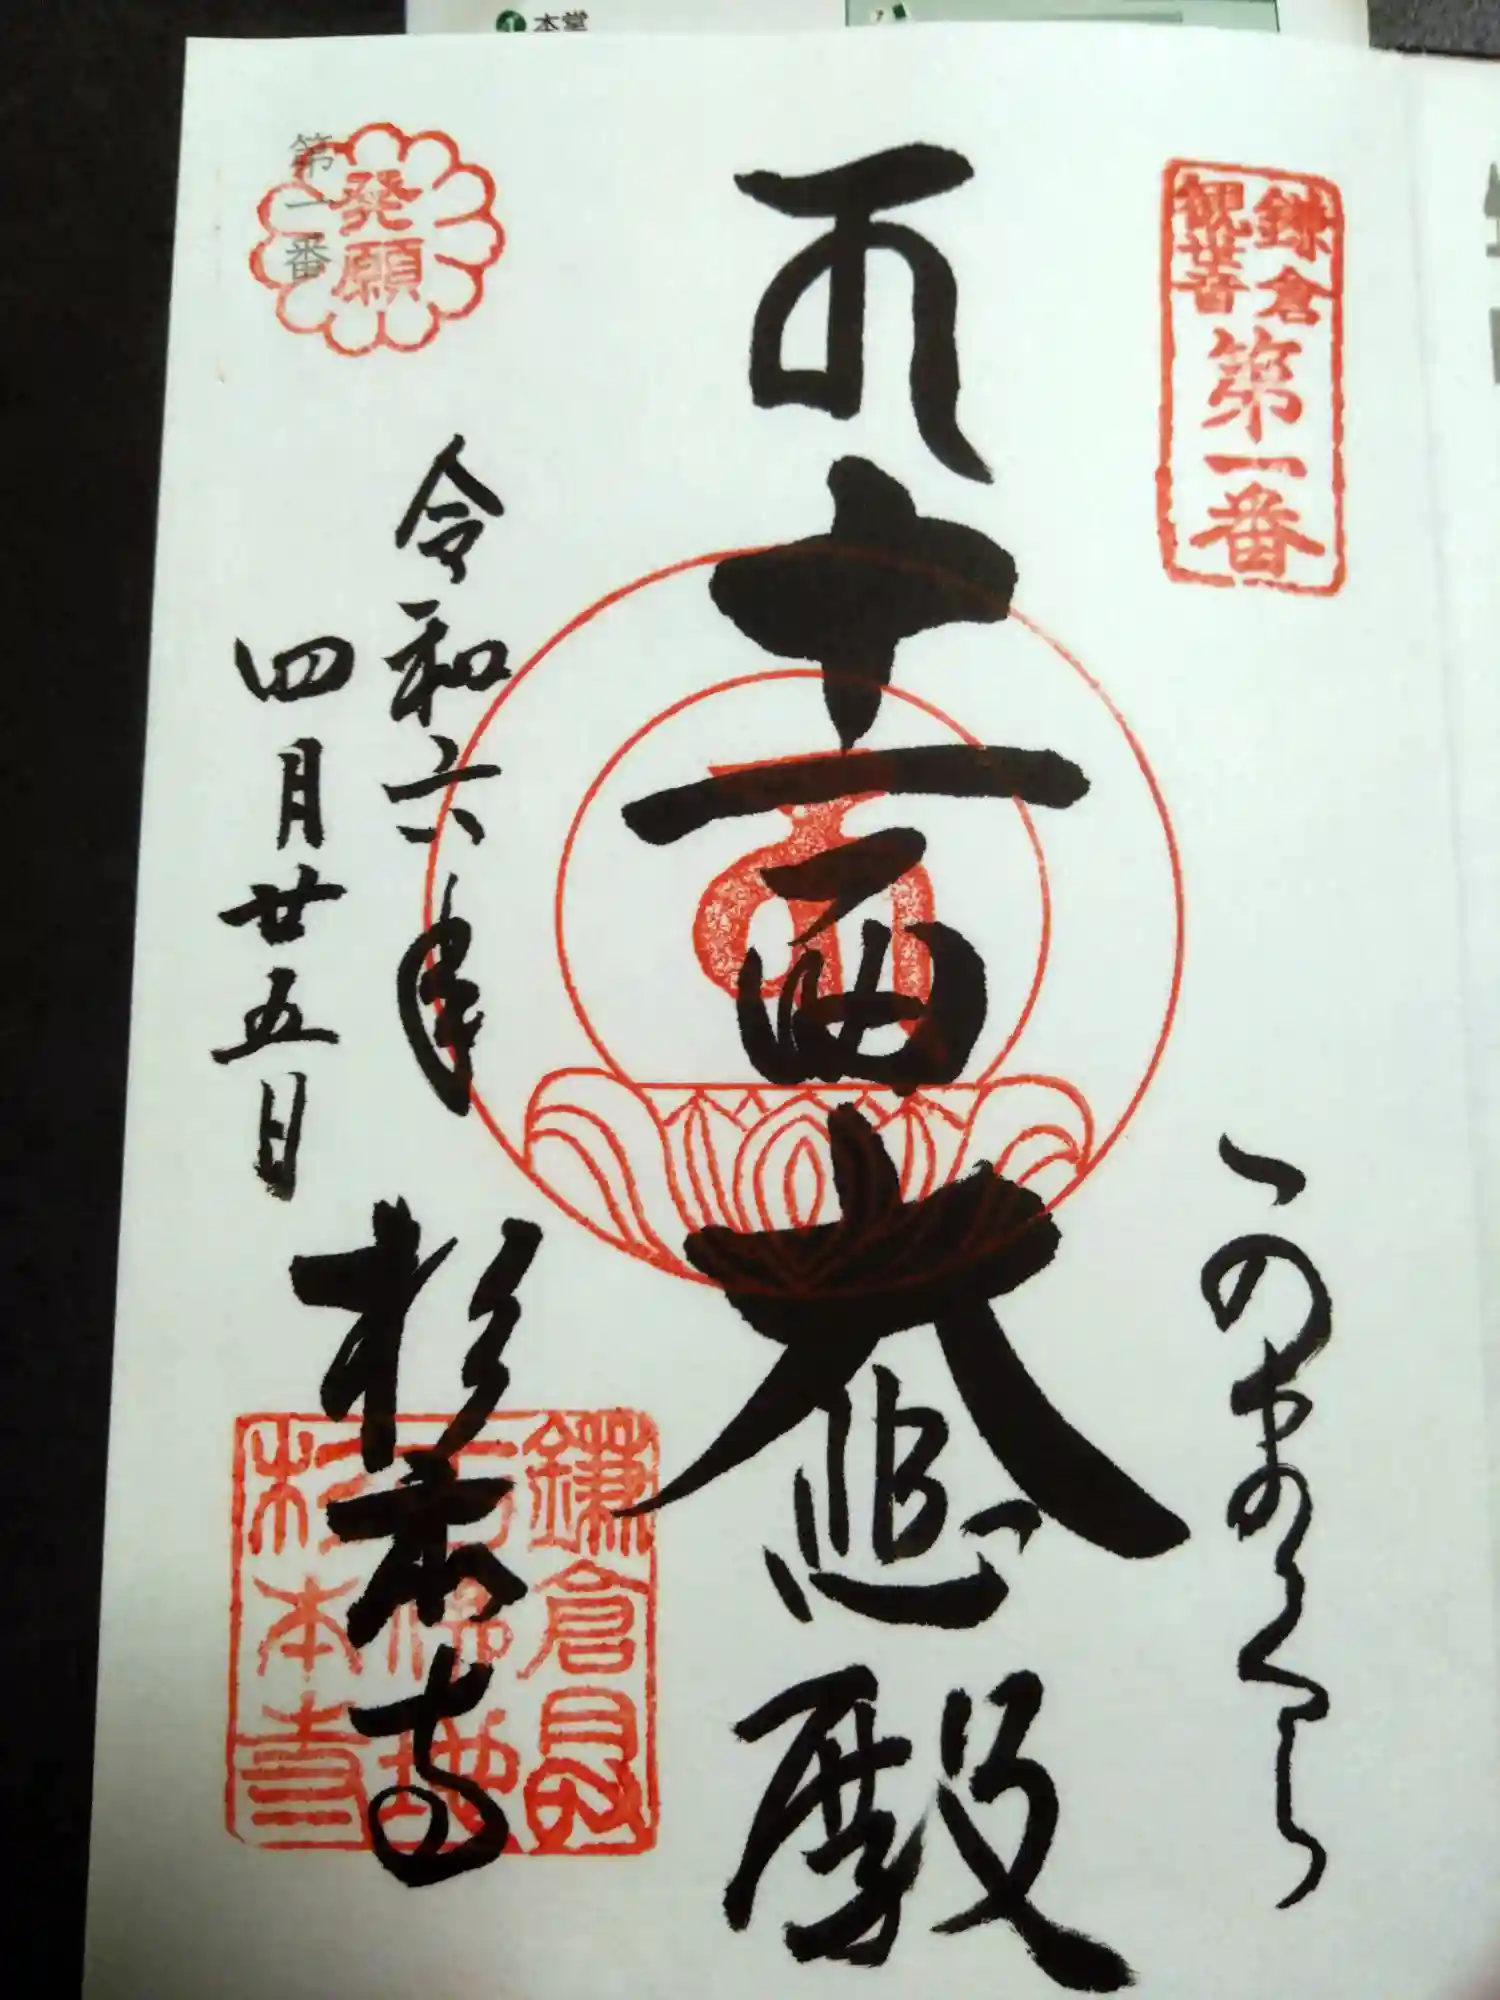 本堂
鎌倉
観世音
第一番
かまくら
十一面大悲殿
発願
第一番
令和六年
四月廿五日
杉本寺
鎌倉
杉本寺